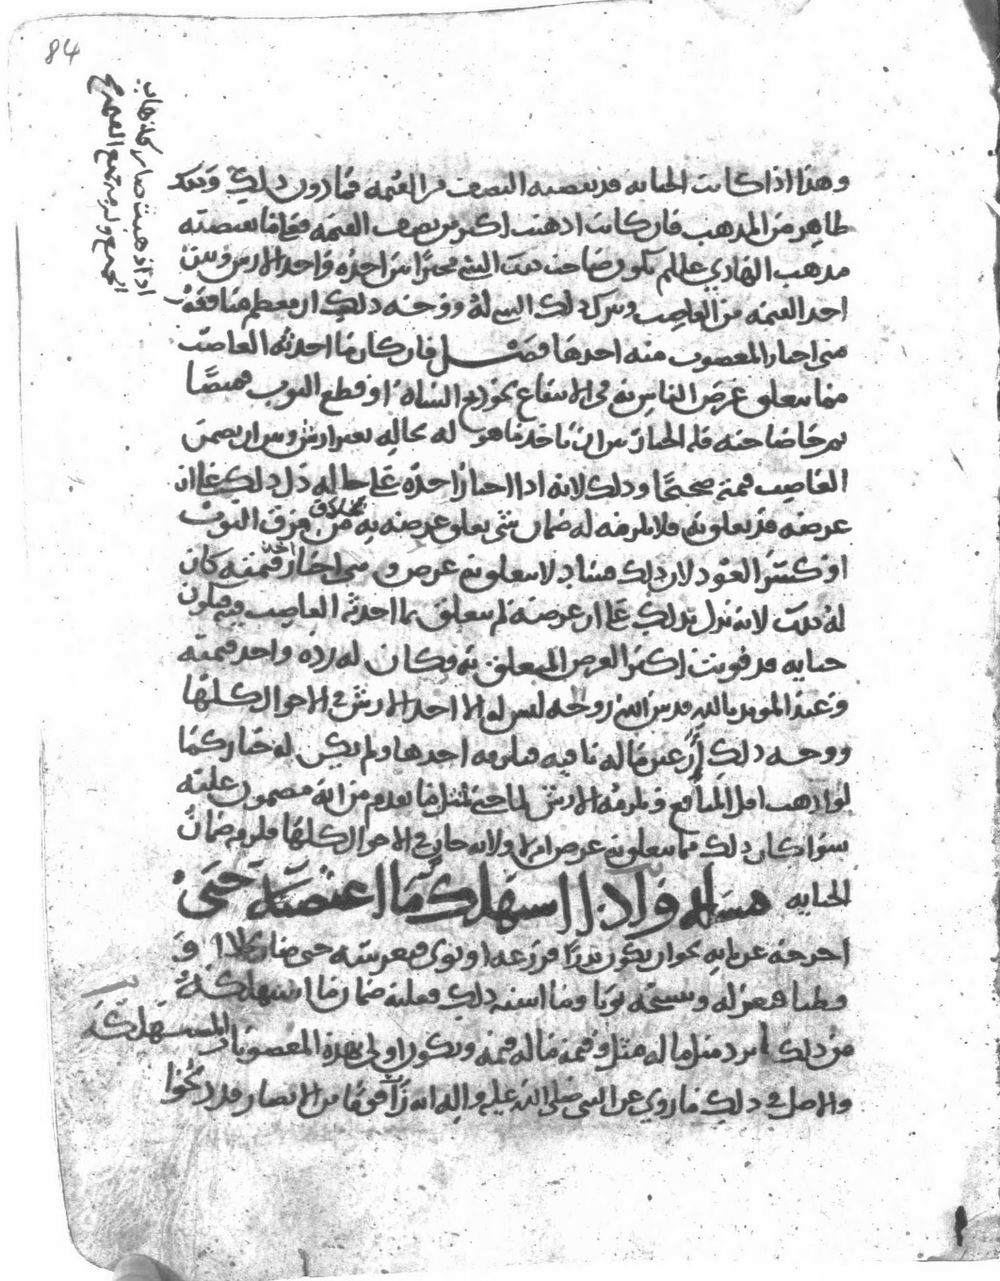 84
وهذا اذا كانت الجنايه قد نقصته النصف من القيمه فما دون ذلك
ظاهر من المذهب فان كانت اذهبت اكثر من نصف القيمه فعلى ما نصته
مذهب الهادي عليلم يكون صاحب ذلك الشي مخيرا بين اخذه واخذ الارش وبين
اخذ القيمه من الغاصب وترك ذلك الشي له ووجه ذلك ان معظم منافعه
متى اختار المغصوب منه احدها فصل فان كان ما احدثه الغاصب
مما يتعلق غرض الناس به في الانتفاع نحو ذبح الشاة او قطع الثوب قميصا
ثم جا صاحبه فله الخيار بين ان ياخذ ما هو له بحاله بغير ارش وبين ان يضمن
الغاصب قيمته صحيحا وذلك لانه اذا اختار اخذه على حاله دل ذلك على ان
غرضه قد تعلق به فلا يلزمه له ضمان شي تعلق غرضه به بخلاف من مزق الثوب
او كسر العود لان ذلك فساد لا يتعلق به غرض ومتى اختار اخذ قيمته كان
له ذلك لانه يدل بذلك على ان غرضه لم يتعلق بما احدثه الغاصب فيه فيكون
جنايه قد فوتت اكثر الغرض المتعلق به فكان له رده واخذ قيمته
وعند المويد بالله قدس الله روحه ليس له الا اخذ الارش في الاحوال كلها
ووجه ذلك ان عين ماله باقيه فيلزمه اخذها ولم يكن له خيار كما
لو اذهب اقل المنافع ويلزمه الارش لما جنى لمثل ما تقدم من انه مضمون عليه
سوا كان ذلك مما يتعلق به غرض ام لا ولانه جان في الاحوال كلها فلزمه ضمان
الجنايه مسله واذا استهلك ما اغتصبه حتى
اخرجه عن بابه نحو ان يكون بذرا فزرعه او نوى فغرسه حتى صار نخلا او
قطنا فغزله ونسجه ثوبا وما اشبه ذلك فعليه ضمان ما استهلكه
من ذلك يرد مثل ما له مثل وقيمة ما له قيمة ويكون اولى بهذه المغصوبات المستهلكه
والاصل في ذلك ما روي عن النبي صلى الله عليه واله انه زار قوما من الانصار فذبحوا